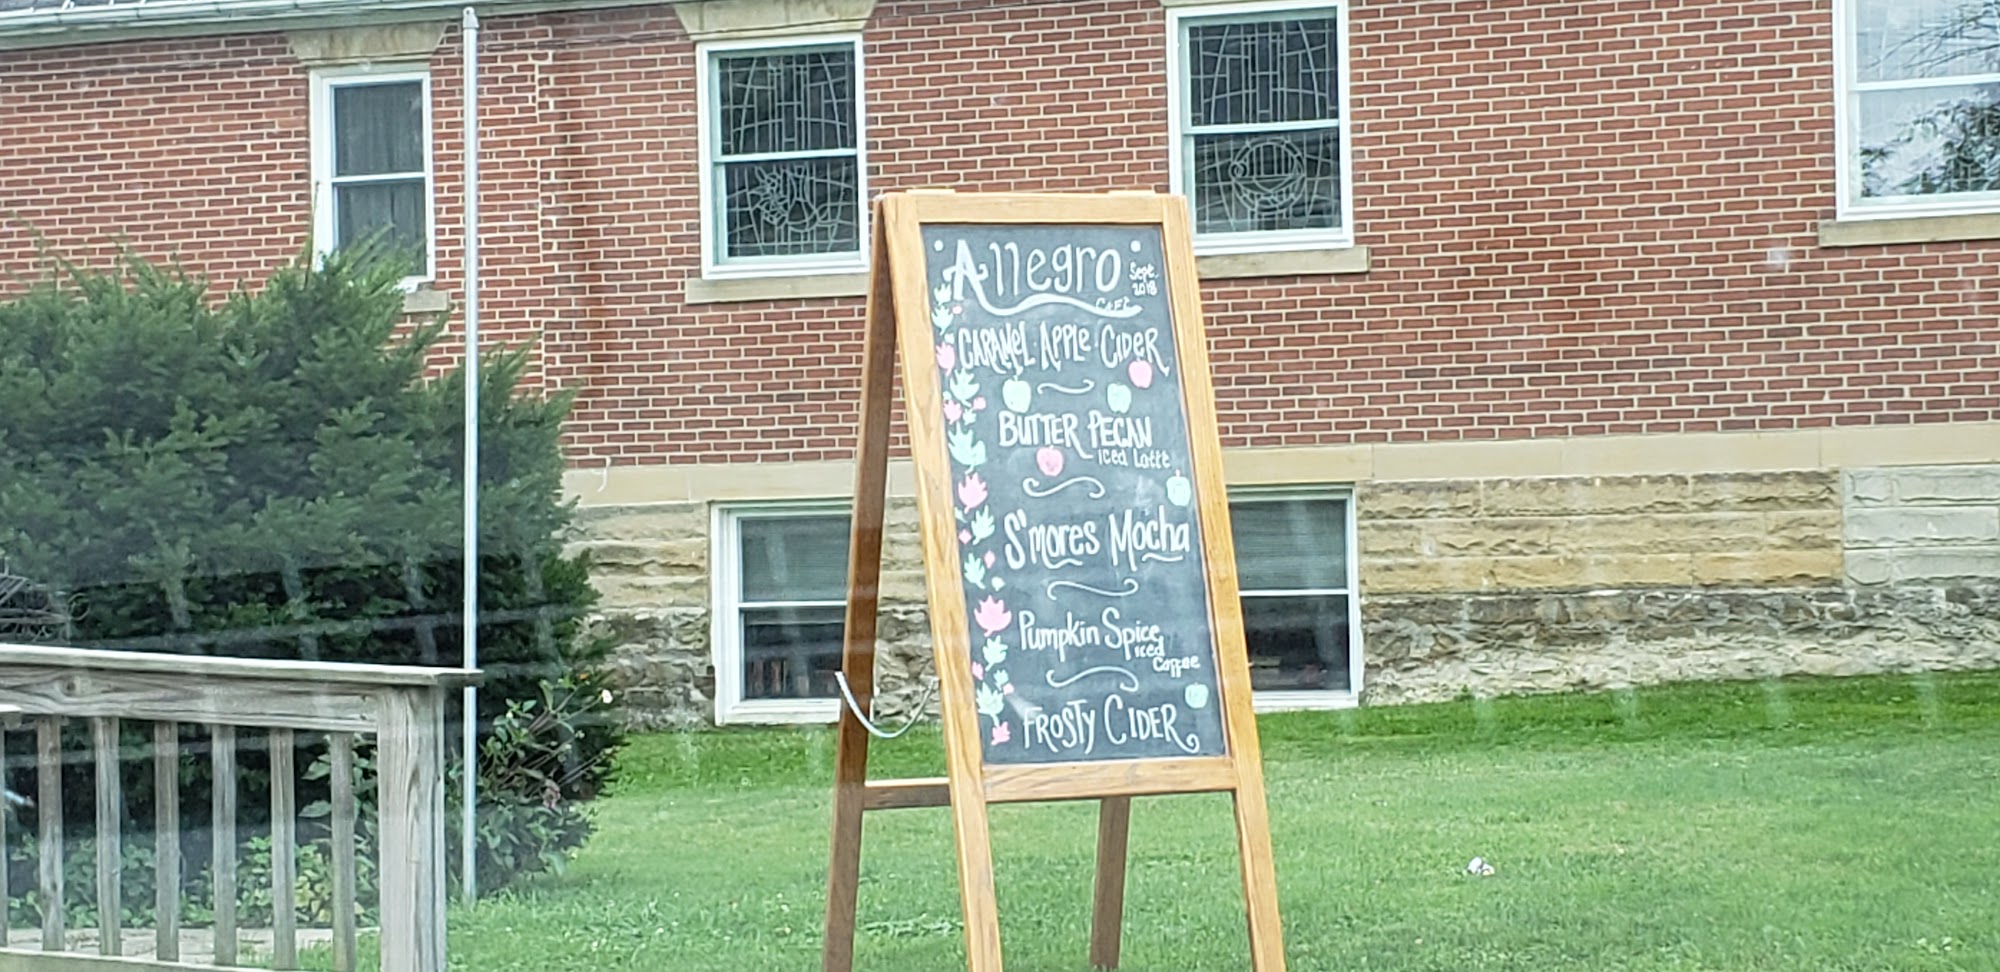 Allegro
Sept.
2018
CAFE
CARAMEL APPLE CIDER
BUTTER PECAN
iced Latte
S'mores Mocha
Pumpkin Spice
iced
Coffee
FROSTY CIDER